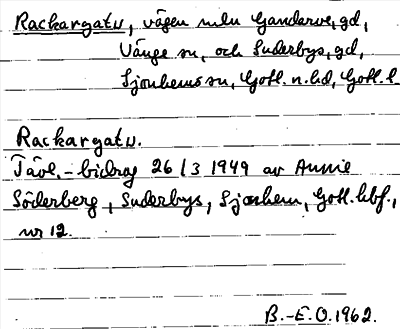 Rackargatu, vägen mlu Ganderve, gd,
Vänge sn, och Suderbys, gd,
Sjonhems sn, Gotl. n. hd, Gotl. l
Rackargatu.
Tävl.-bidrag 26/3 1949 av Annie
Söderberg, Suderbys, Sjonhem, Gotl. hbf.,
nr 12.
B.-E. O. 1962.